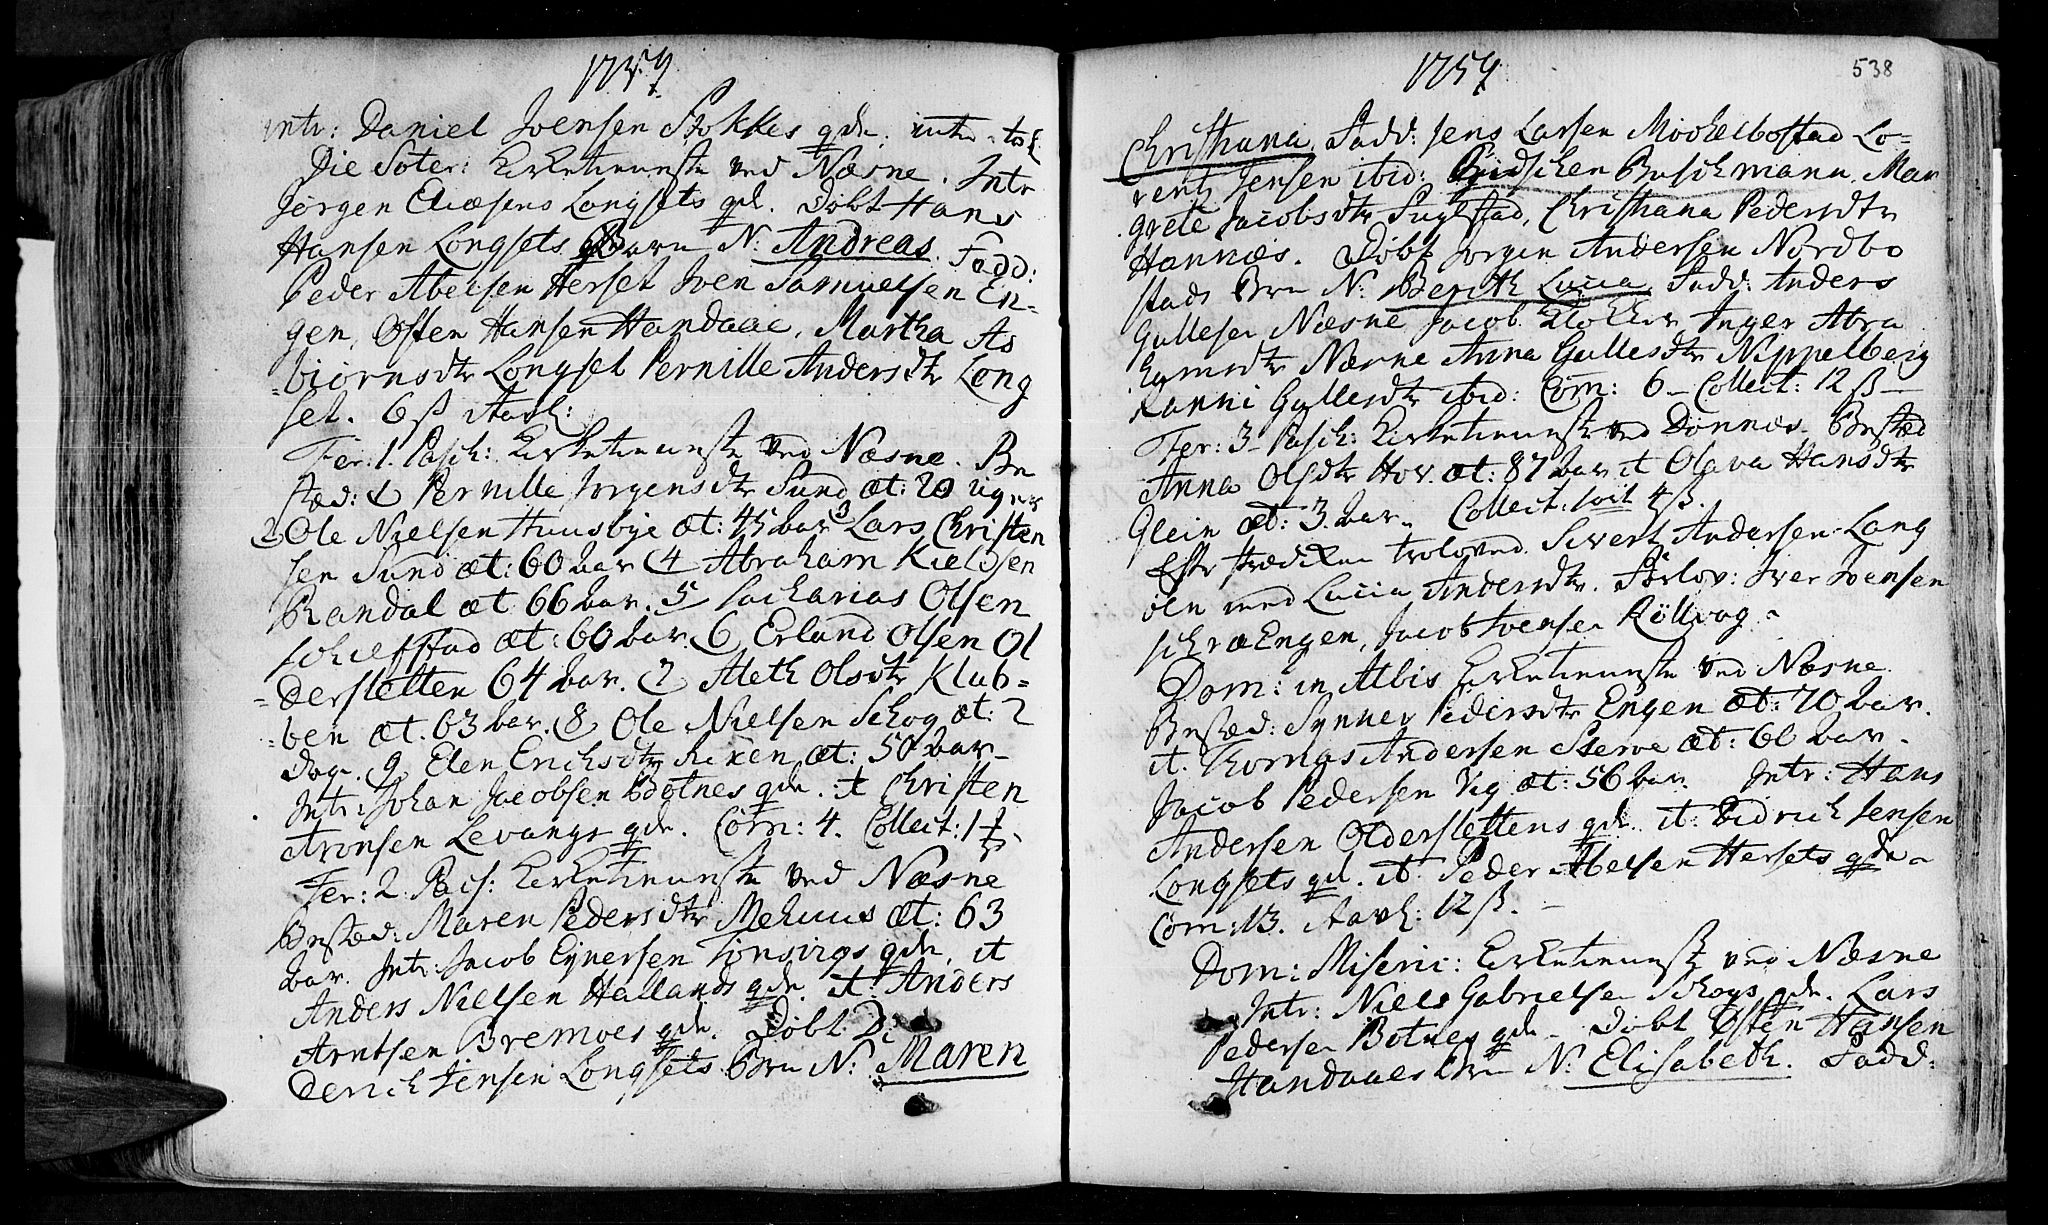 1757
Intr: Daniel Joensen Stokkes qde.
Die Soter: Kirketieneste ved Næsne. Intr
Jørgen Eliæsens Longsets qd. Døbt Hans
Hansen Longsets Barn N: Andreas. Fadd:
Peder Abelsen Herset Joen Samuelsen En-
gen, Osten Hansen Handaae, Martha As
biørnsdtr Longset Pernille Andersdtr Long
set. 6 ß Tavl:
Fer: 1. Pasch: Kirketieneste ved Næsne. Be
stæd: 1 Pernille Jørgensdtr Sund æt: 20 uger
2 Ole Nielsen Huusbye æt: 45 bar 3 Lars Christen
sen Sund æt: 60 bar 4 Abraham Kieldsen
Randal æt 66 bar. 5 Zacharias Olsen
Schiefstad æt: 60 bar 6 Erland Olsen Ol
dersletten 64 bar. 7 Aleth Olsdtr Klub-
ben æt. 63 bar. 8 Ole Nielsen Schog æt: 2
dage. 9 Elen Erichsdtr Reken æt: 50 bar
Intr: Johan Jacobsen Botnes qde. it Christen
Aronsen Levangs qde. Com: 4. Collect: 1
Fer: 2. Pasc: Kirketieneste ved Næsne
Bestæd: Maren Pedersdtr Mehuus æt: 63
bar. Intr: Jacob Ejnersen Tonvigs qde, it
Anders Nielsen Hallands qde. it Anders
Arntsen Bremoes qde. Døbt Di
derich Jensen Longsets Brn N: Maren
1757
538
Christiana, Fadd: Jens Larsen Mockelbostad Lo-
rentz Jensen ibid: Buschmann. Mar
grete Jacobsdtr Fuglstad, Christiana Pedersdtr
Hannæs. Døbt Jørgen Andersen Nordbo
stads Brn N: Berith Lucia, Fadd: Anders
Gullesen Næsne Jacob Klocker Inger Abra
hamsdtr Næsne Anna Gullesdtr Nippelberg
Ranni Gullesdtr ibid: Com: 6 - Collect: 12 ß -
Fer: 3 Pasch: Kirketieneste ved Dønnæs. Bestæd
Anna Olsdtr Hov. æt: 87 bar it Olava Hansdtr
Glein æt: 3 bar. Collect: 4 ß.
Efter Prædiken troloved Sivert Andersen Lang
øen med Lucia Andersdtr. Forlov: Iver Joensen
SchraEngen, Jacob Joensen Røllvog.
Dom: in Albis Kirketieneste ved Næsne
Bestæd: Synnev Pedersdtr Engen æt: 70 bar.
it. Thomas Andersen Sterve æt: 60 bar.
Jacob Pedersen Vig æt: 56 bar. Intr: Hans
Andersen Olderslettens qde. it: Didrich Jensen
Longsets qd. it Peder Abelsen Hersets qde.
Com: 13. Tavl: 12 ß. -
Dom: Miseri: Kirketieneste ved Næsne
Intr: Niels Gabrielsen Schogs qde. Lars
Pedersen Botnes qde - Døbt Osten Hansen
Handaaes Brn N: Elisabeth. Fadd: